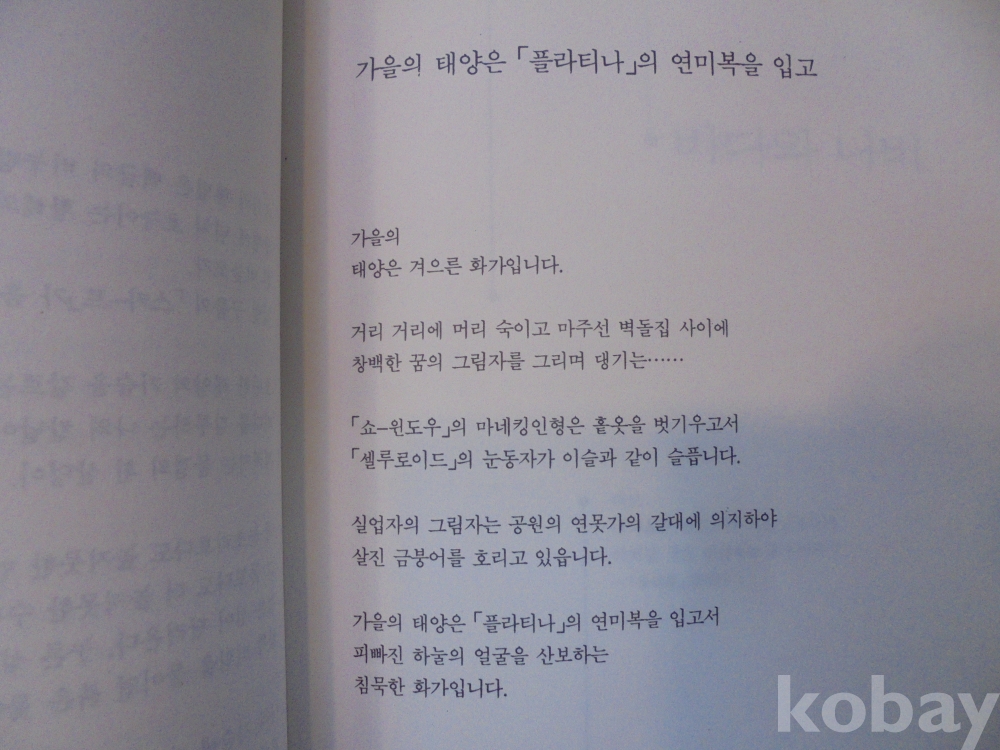 가을의 태양은 「플라티나」의 연미복을 입고
가을의
태양은 겨으른 화가입니다.
거리 거리에 머리 숙이고 마주선 벽돌집 사이에
창백한 꿈의 그림자를 그리며 댕기는……
「쇼―윈도우」의 마네킹인형은 홑옷을 벗기우고서
「셀루로이드」의 눈동자가 이슬과 같이 슬픕니다.
실업자의 그림자는 공원의 연못가의 갈대에 의지하야
살진 금붕어를 호리고 있읍니다.
가을의 태양은 「플라티나」의 연미복을 입고서
피빠진 하눌의 얼굴을 산보하는
침묵한 화가입니다.
kobay